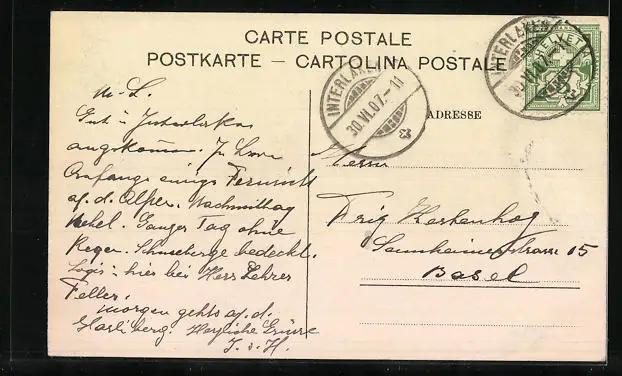 CARTE POSTALE
POSTKARTE — CARTOLINA POSTALE
INTERLAKEN
30.VI.07.-11
INTERLAKEN
30.VI.07.-11
HELVETIA
ADRESSE
M. L.
Gut in Interlaken
angekommen. In
Anfangs einige Fernsicht
a. d. Alpen. Nachmittag
Nebel. Ganzer Tag ohne
Regen. Schneeberge bedeckt.
Logis: hier bei Herr Lehrer
Feller.
Morgen gehts a. d.
Harliberg. Herzliche Grüsse
J. v. H.
Herrn
Fritz Hertenhog
Sennheimerstrasse 15
Basel